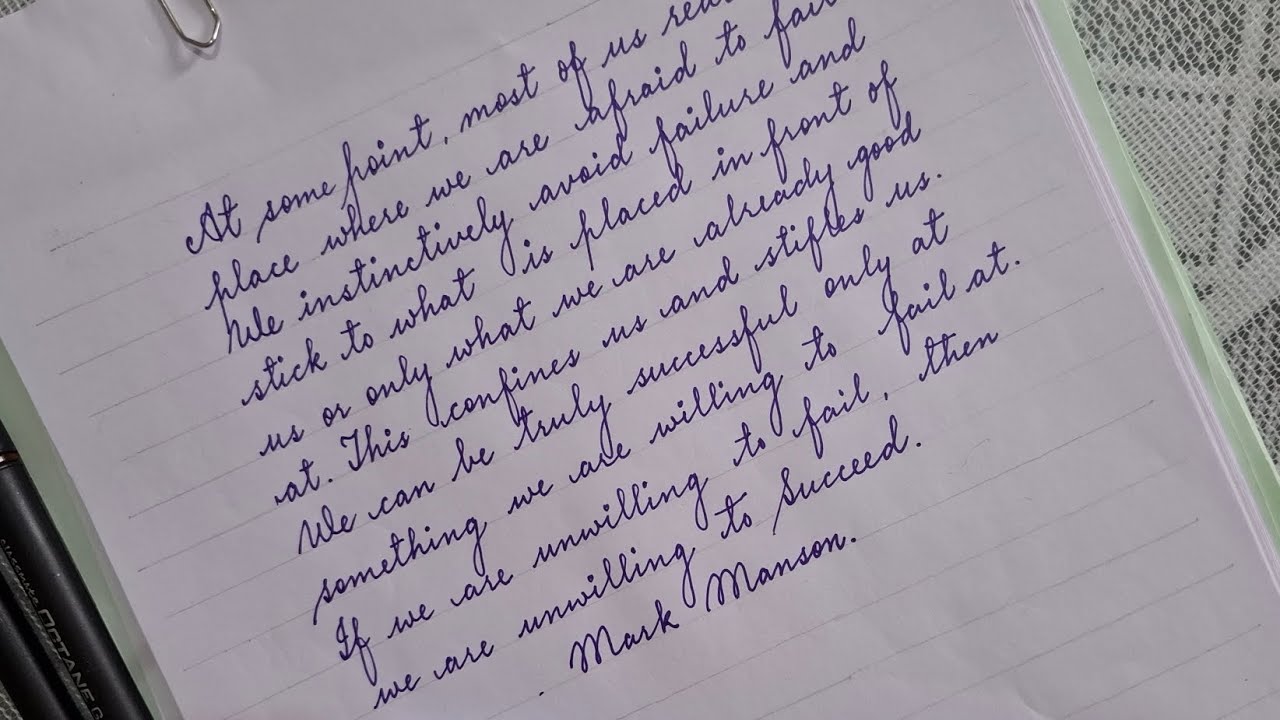 At some point, most of us
place where we are afraid to fail
We instinctively avoid failure and
stick to what is placed in front of
us or only what we are already good
at. This confines us and stifles us.
We can be truly successful only at
something we are willing to fail at.
If we are unwilling to fail, then
we are unwilling to Succeed.
. Mark Manson.
OCTANE